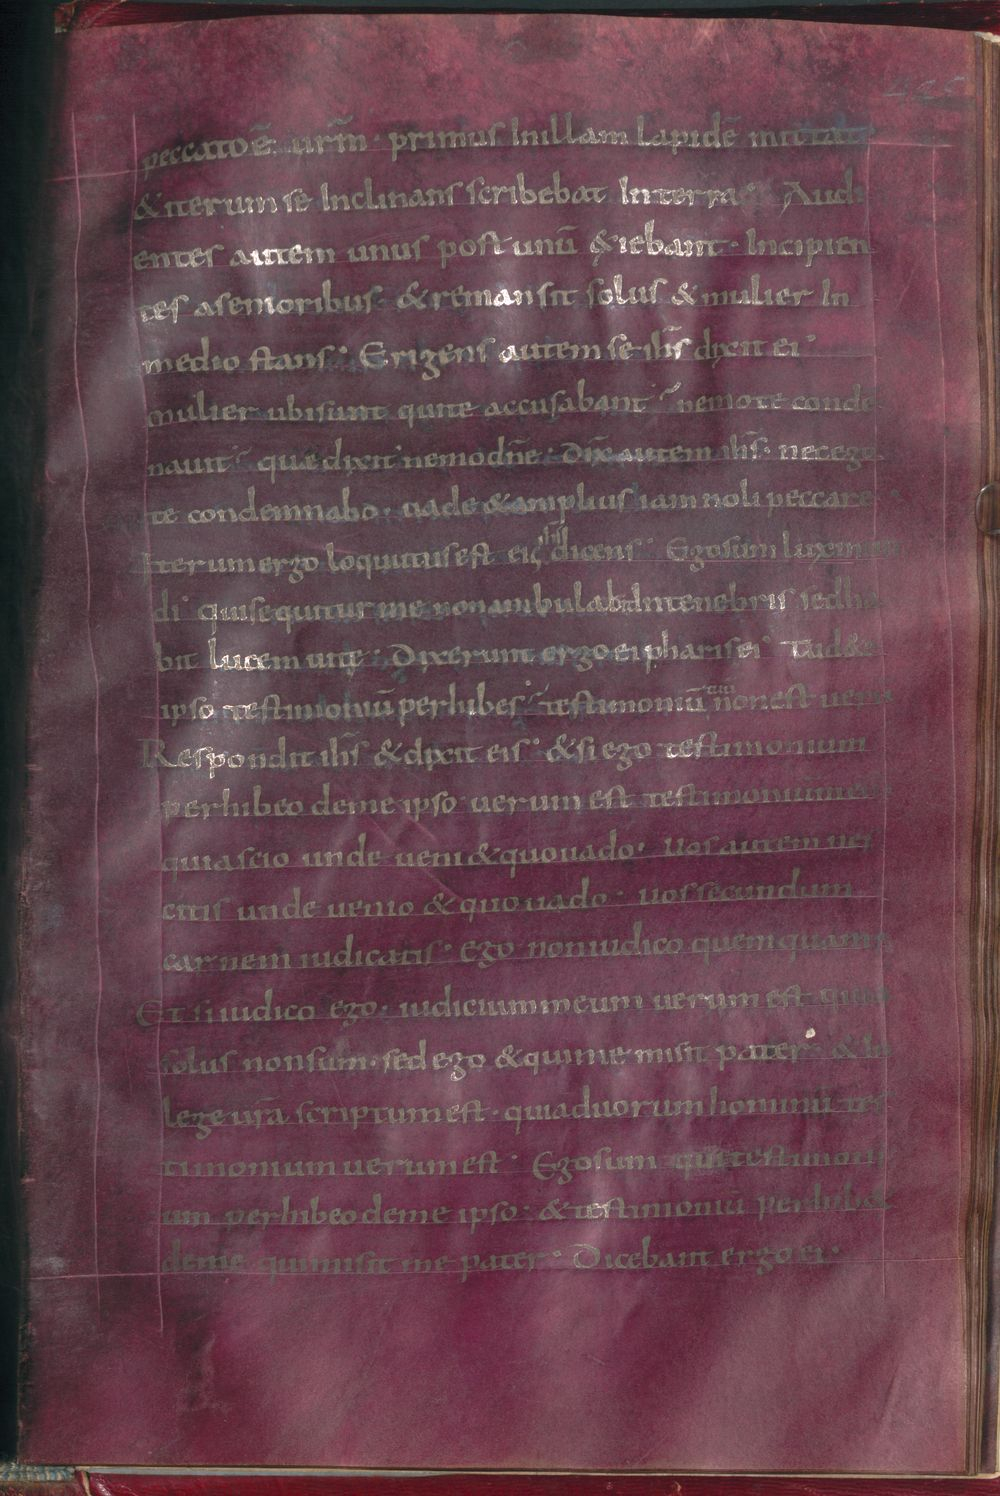 peccato ē urm̄ · primus In illam lapidē mittat
& iterum se Inclinans scribebat In terra · Audi
entes autem unus post unū & iebant · Incipien
tes a senioribus · & remansit solus & mulier In
medio stans · Erigens autem se ihs̄ dixit ei ·
mulier ubi sunt qui te accusabant · nemo te conde
nauit · quę dixit nemo dn̄e · Dix̄ autem ihs̄ · nec ego
te condemnabo · uade & amplius iam noli peccare ·
Iterum ergo loquutus est eis ihs̄ dicens · Ego sum lux mun
di qui sequitur me non ambulabit In tenebris sed ha
bit lucem uitę · Dixerunt ergo ei pharisei Tu d&e
ipso testimoniū perhibes · testimoniū tuū non est ueru
Respondit ihs̄ & dixit eis · & si ego testimonium
perhibeo de me ipso uerum est testimoniū meū
quia scio unde ueni & quo uado · uos autem nes
citis unde uenio & quo uado · uos secundum
carnem iudicatis · Ego non iudico quemquam ·
Et si iudico ego · iudicium meum uerum est quia
solus non sum · sed ego & qui me misit pater · & In
lege ur̄a scriptum est · quia duorum hominū tes
timonium uerum est · Ego sum qui testimoni
um perhibeo de me ipso · & testimoniū perhib&
de me qui misit me pater · Dicebant ergo ei ·